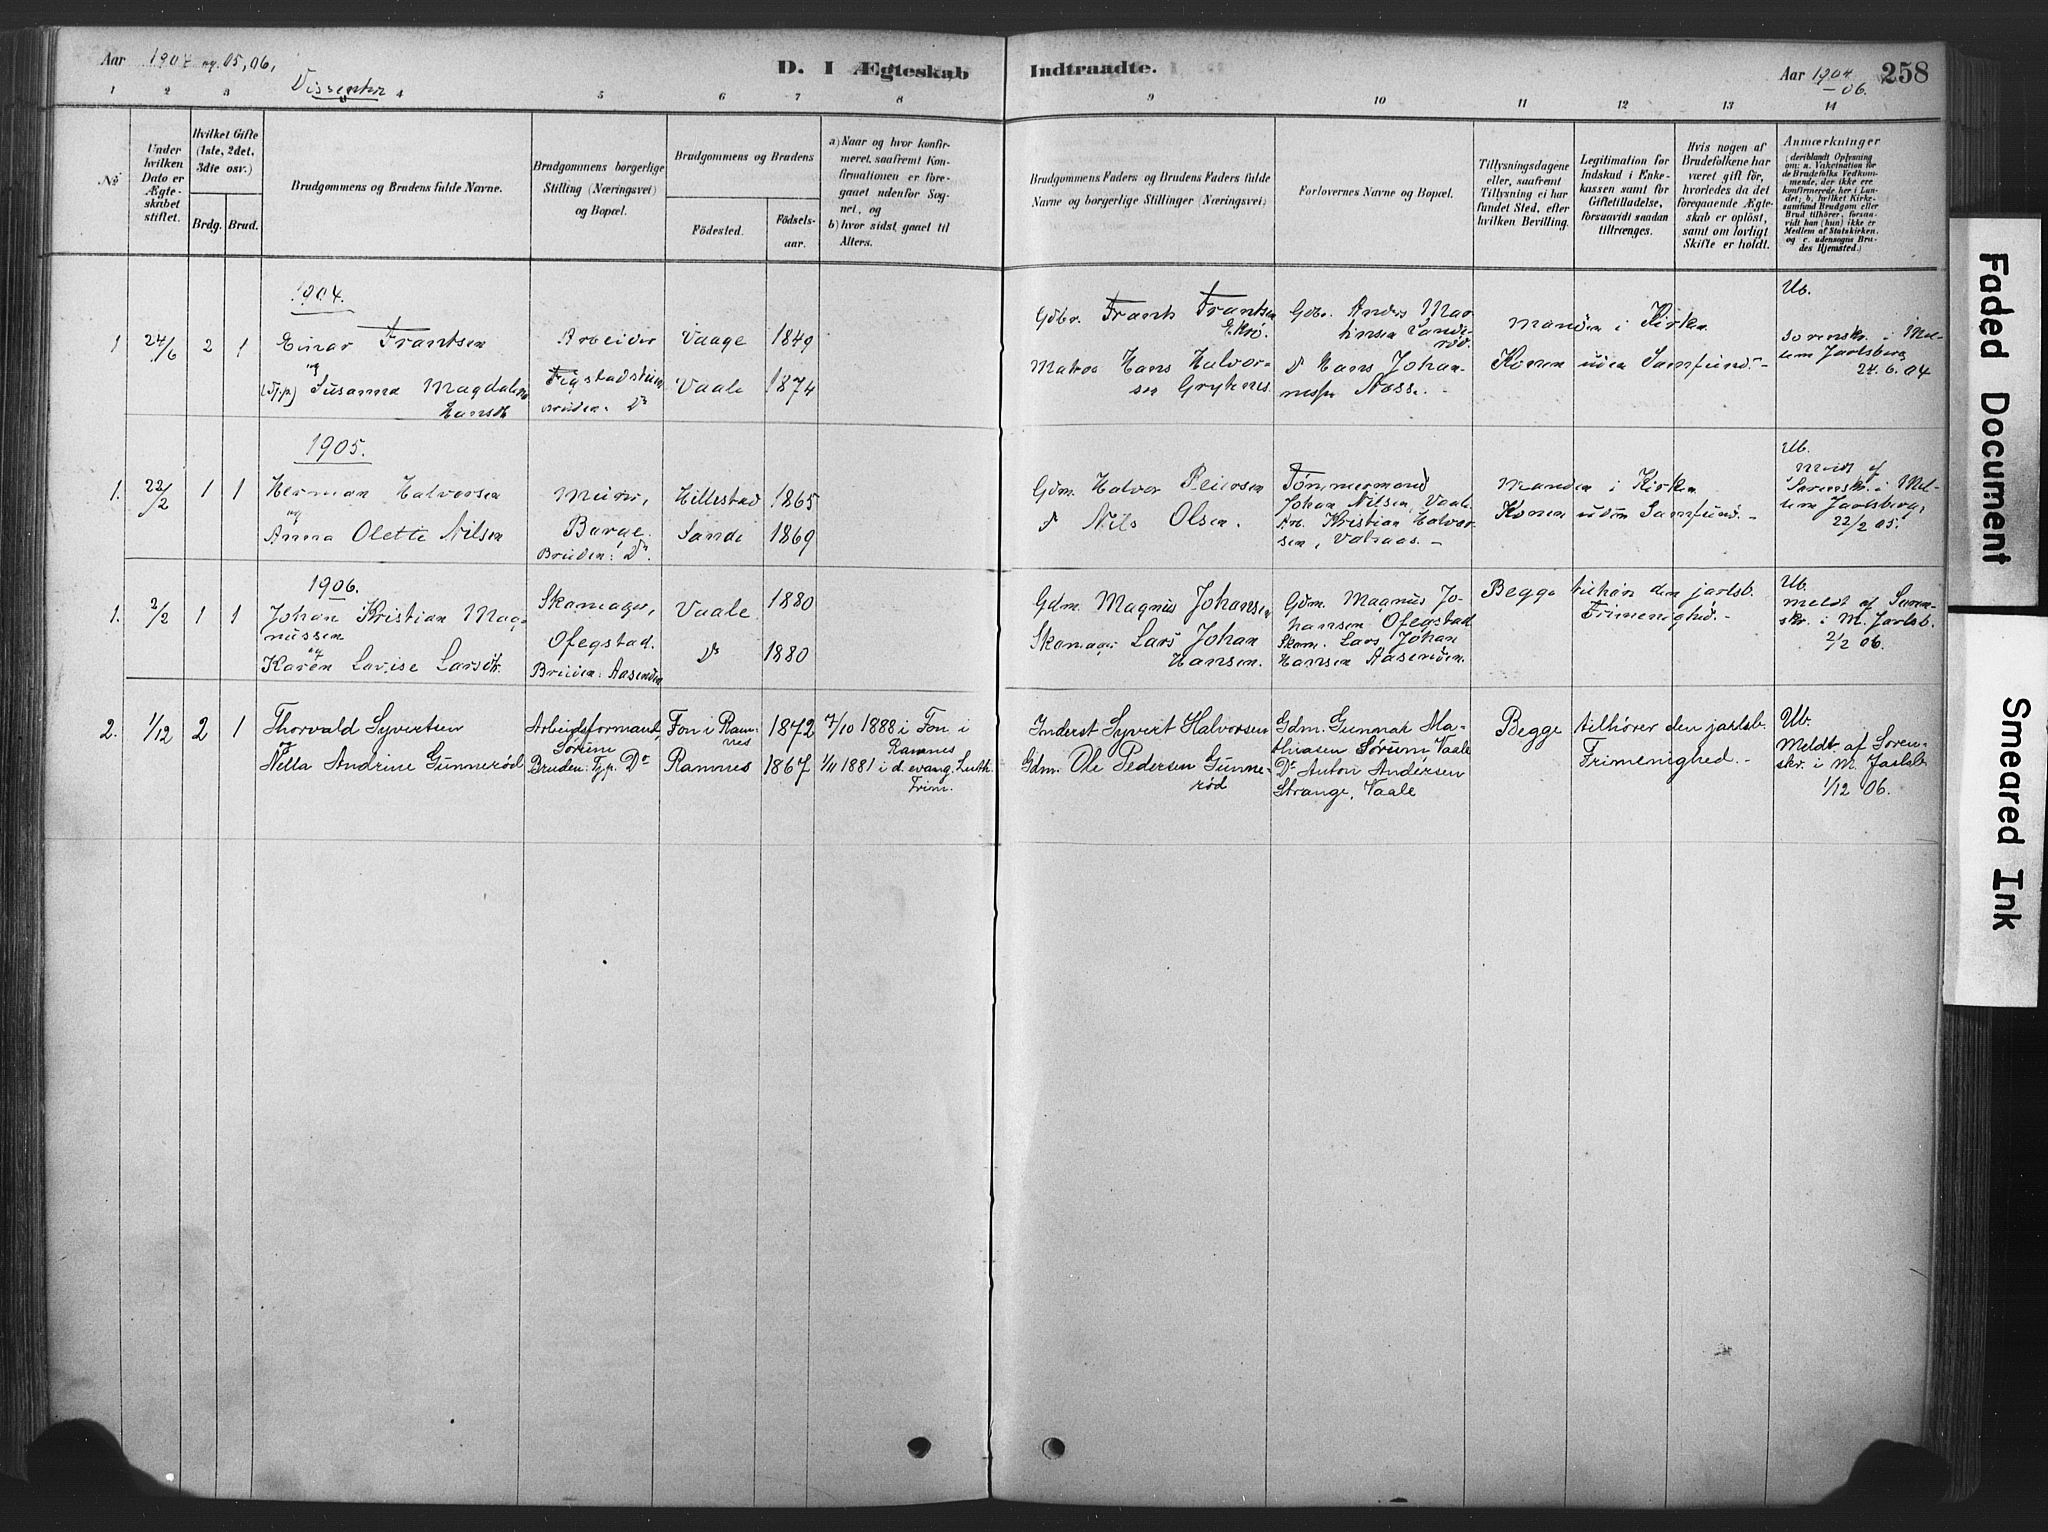 Aar 1904 og 05, 06,
Dissenter
D. I Ægteskab Indtraadte.
Aar 1904 258
– 06.
1 2 3 4 5 6 7 8 9 10 11 12 13 14
No
Under hvilken Dato er Ægteskabet stiftet.
Hvilket Gifte (1ste, 2det, 3die osv.)
Brdg. Brud.
Brudgommens og Brudens fulde Navne.
Brudgommens borgerlige Stilling (Næringsvei) og Bopæl.
Brudgommens og Brudens
Födested.
Födselsaar.
a) Naar og hvor konfirmeret, saafremt Konfirmationen er foregaaet udenfor Sognet, og
b) hvor sidst gaaet til Alters.
Brudgommens Faders og Brudens Faders fulde Navne og borgerlige Stillinger (Næringsvei)
Forlovernes Navne og Bopæl.
Tillysningsdagene eller, saafremt Tillysning ei har fundet Sted, efter hvilken Bevilling.
Legitimation for Indskud i Enkekassen samt for Giftetilladelse, forsaavidt saadan tiltrænges.
Hvis nogen af Brudefolkene har været gift før, hvorledes da det foregaaende Ægteskab er oplöst, samt om lovligt Skifte er holdt.
Anmærkninger
(deriblandt Oplysning om: a. Vakcination for de Brudefolks Vedkommende, der ikke ere konfirmerede her i Landet; b. hvilket Kirkesamfund Brudgom eller Brud tilhører, forsaavidt han (hun) ikke er Medlem af Statskirken, og c. udensogns Brudes Hjemsted.)
1904.
1 24/6 2 1 Einar Frantsen
og
Susanna Magdalena
Hansdr
Arbeider
Bruden: Do
Vaage 1849
Vaale 1874
Gdbr. Frants Frantsen
Ekrø.
Matros Hans Halvorsen
Gryknes.
Gdbr. Anders Martinsen
Sanderød.
Do Hans Johannessen
Næss. –
Manden i Kirken
Konen uden Samfund. –
Ub.
Sorenskr. i Mellem Jarlsberg
24.6.04
1905.
1. 22/2 1 1 Herman Halvorsen
og
Anna Olette Nilsen
Murer,
Barge.
Bruden: Do.
Hillestad 1865
Sande 1869
Gdm. Halvor Reiersen
Do Nils Olsen.
Tømmermand
Johan Nilsen, Vaale
Arb. Kristian Halvorsen, –
Manden i Kirken
Konen uden Samfund. –
Ub.
Meldt af
Sorenskr. i Mellem Jarlsberg,
22/2 05.
1906.
1. 2/2 1 1 Johan Kristian Magnussen
og
Karen Lovise Larsdr.
Skomager,
Ofegstad.
Bruden: Aasenden
Vaale 1880
Do 1880
Gdm. Magnus Johansen
Skomager Lars Johan
Hansen.
Gdm. Magnus Johansen
Ofegstad
Skom. Lars Johan
Hansen Aasenden.
Begge tilhøre den jarlsb.
Frimenighed. –
Ub.
Meldt af Sorenskr. i M. Jarlsb.
2/2 06.
2. 1/12 2 1 Thorvald Syvertsen
og
Nella Andrine Gunnerød
Arbeidsformand,
Sørum
Bruden: Tjp. Do
Fon i Ramnes 1872 7/10 1888 i Fon i
Ramnes
Ramnes 1867 1/11 1881 i d. evang. luth.
Frim.
Inderst Syvert Halvorsen
Gdm. Ole Pedersen Gunnerød
Gdm. Gunnar Mathiasen Sørum, Vaale
Do Anton Andersen
Strange, Vaale
Begge tilhører den jarlsb.
Frimenighed. –
Ub.
Meldt af Sorenskr. i M. Jarlsb.
1/12 06.
Faded Document
Smeared Ink